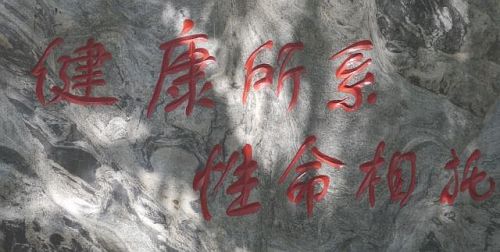 健康所系
性命相托